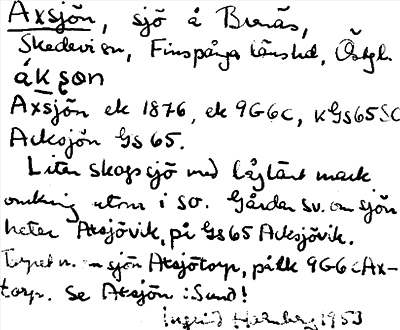 Axsjön, sjö å Brenäs,
Skedevi sn, Finspånga länshd, Östgl.
åkson
Axsjön ek 1876, ek 9G6c, kGs65SO
Acksjön Gs 65.
Liten skogssjö med låglänt mark
omkring utom i SO. Gården SV. om sjön
heter Axsjövik, på Gs65 Acksjövik.
Torpet n. om sjön Axsjötorp, på ek 9G6c Ax-
torp. Se Axsjön i Sund!
Ingrid Holmberg 1953